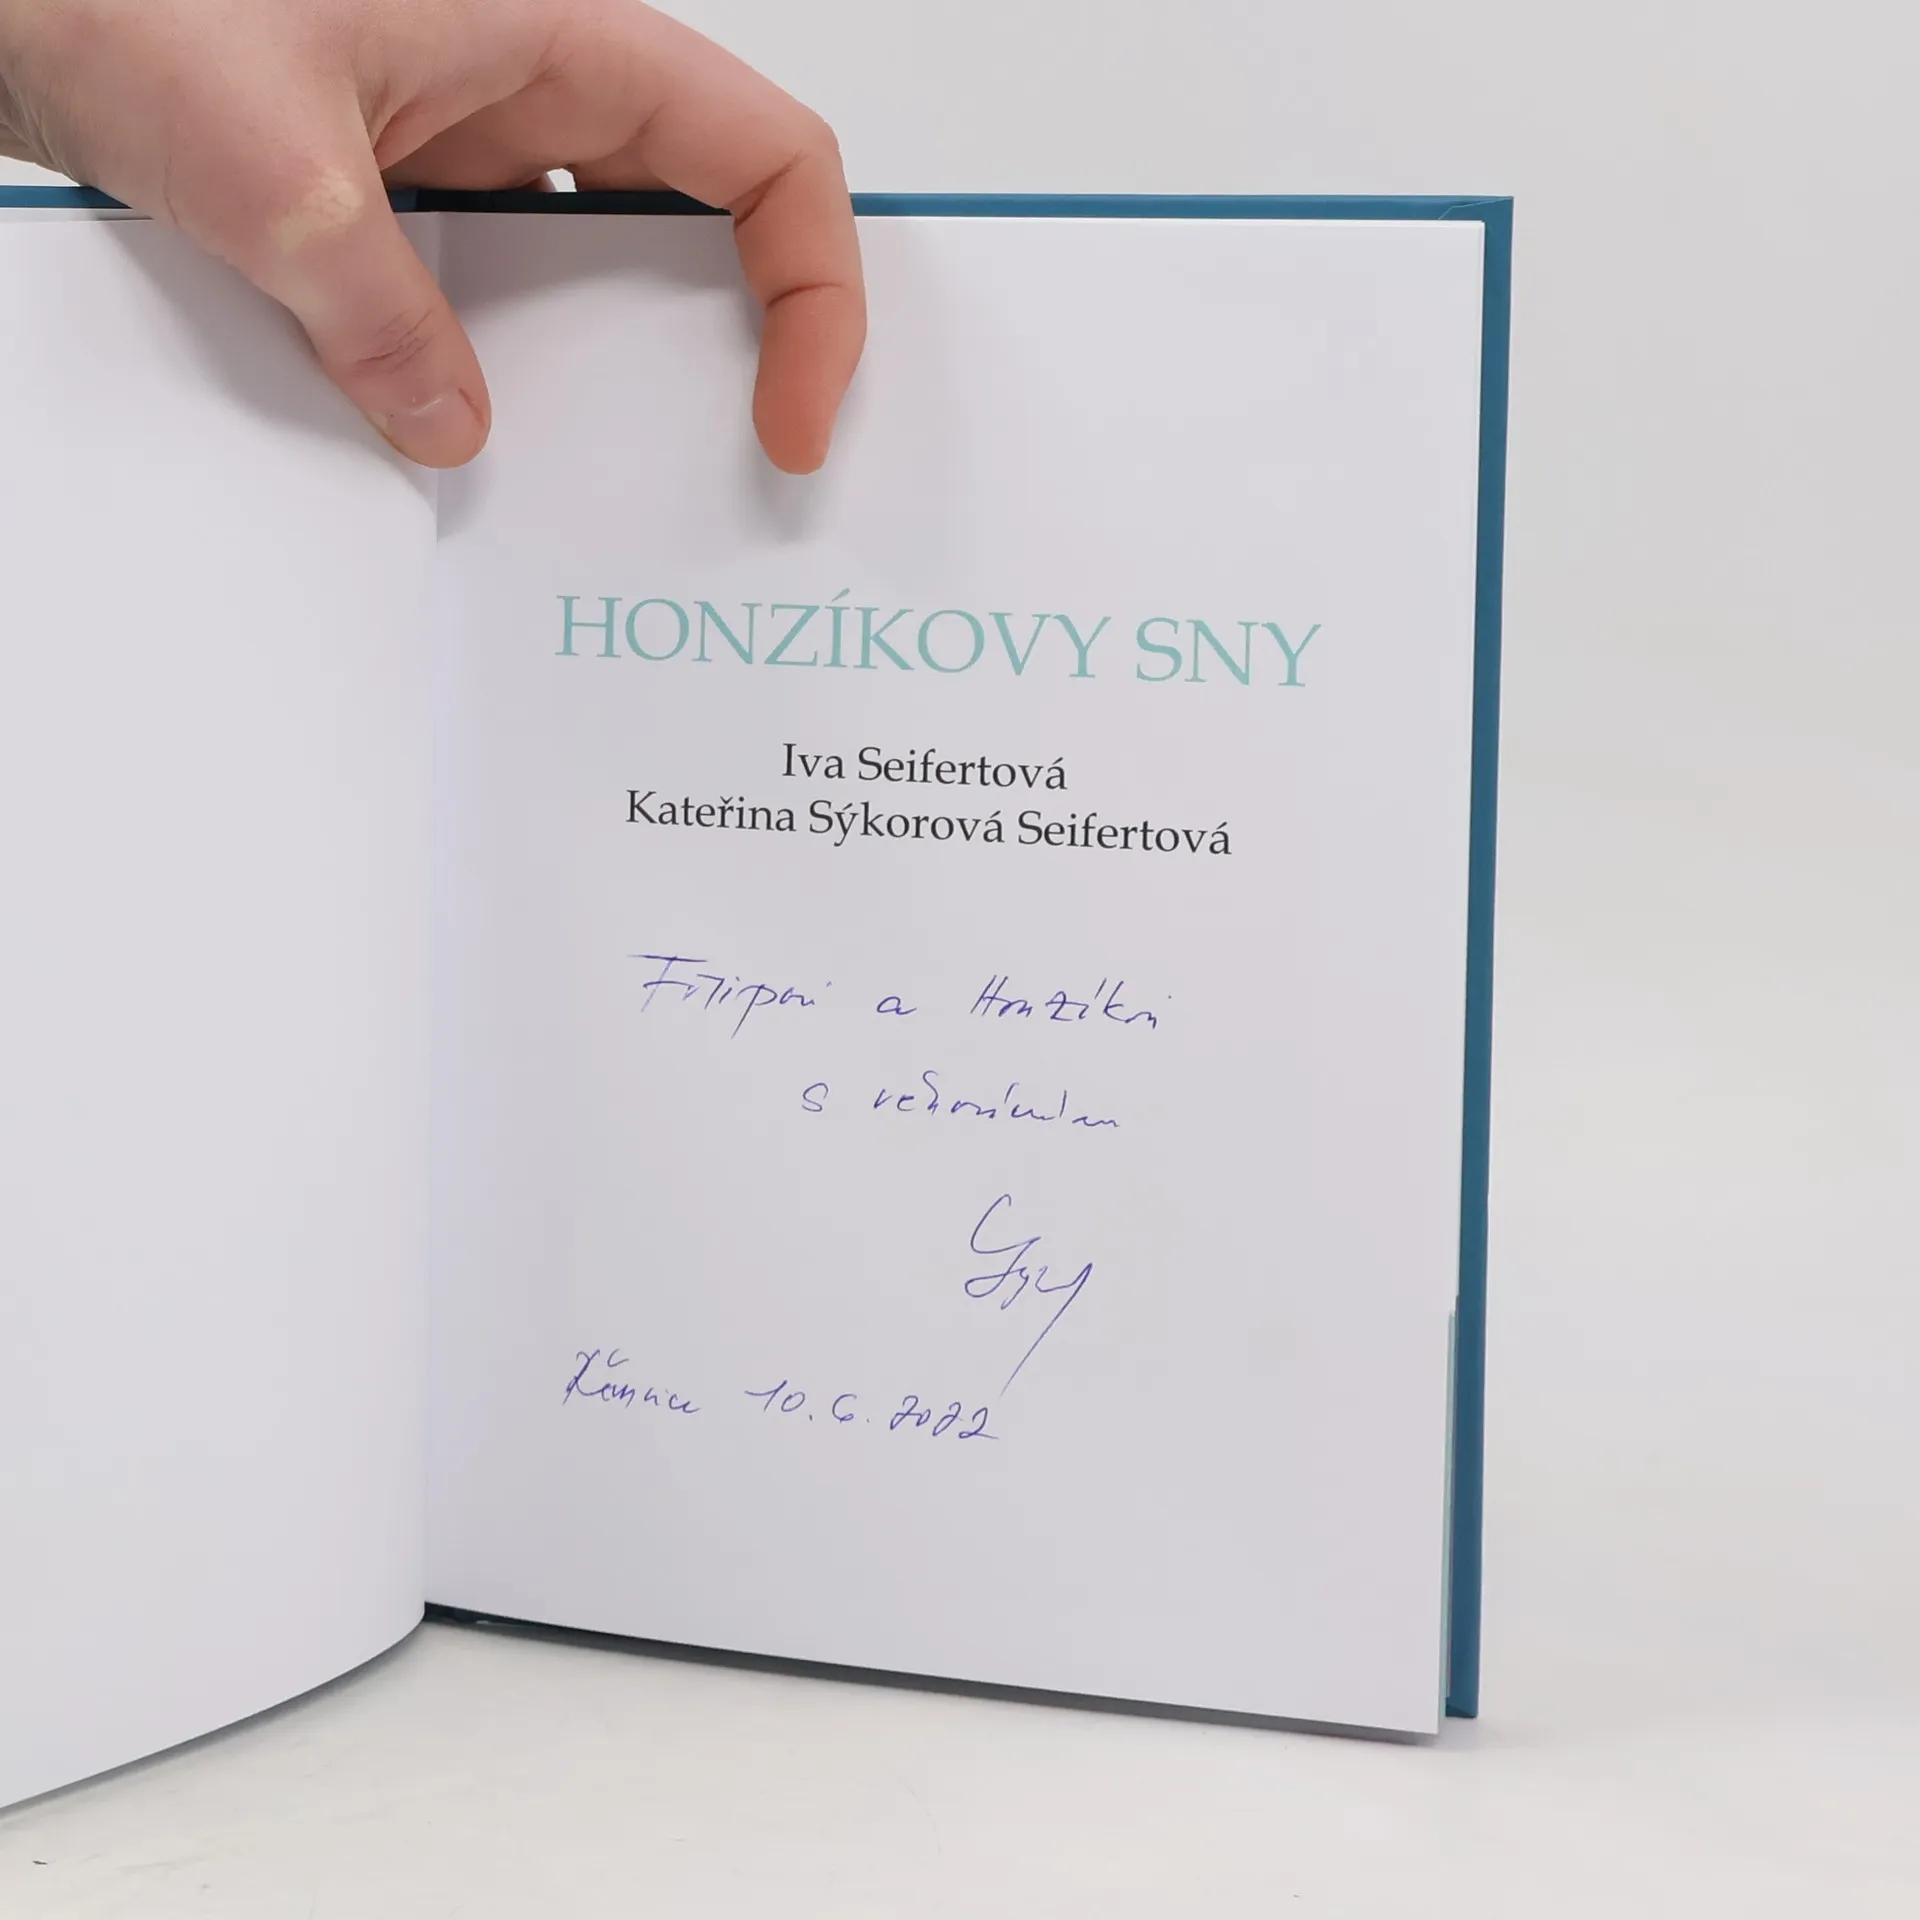 HONZÍKOVY SNY
Iva Seifertová
Kateřina Sýkorová Seifertová
Filipovi a Honzíkovi
s věnováním
10. 6. 2022